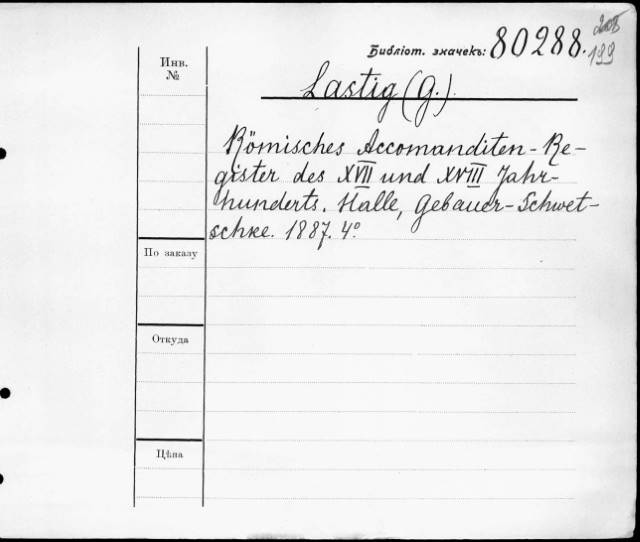 Библіот. значекъ: 80288.
199
Инв.
№
Lastig (G.).
Römisches Accomanditen-Re-
gister des XVII und XVIII Jahr-
hunderts. Halle, Gebauer-Schwet-
schke. 1887. 4º
По заказу
Откуда
Цѣна